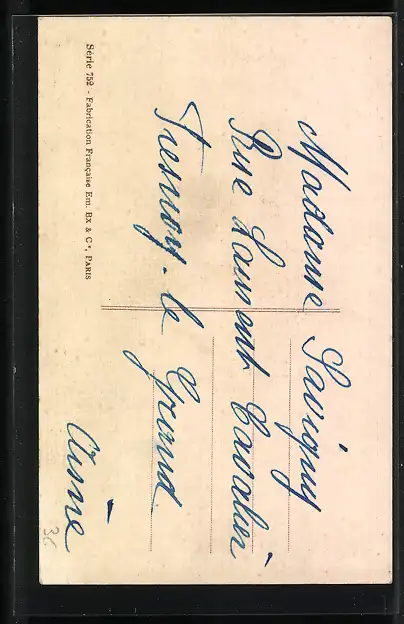 Madame Savigny
Rue Laurent Cavalier
Fresnoy-le Grand
Aisne
Série 752 - Fabrication Française Em. BX & Cie, PARIS
36